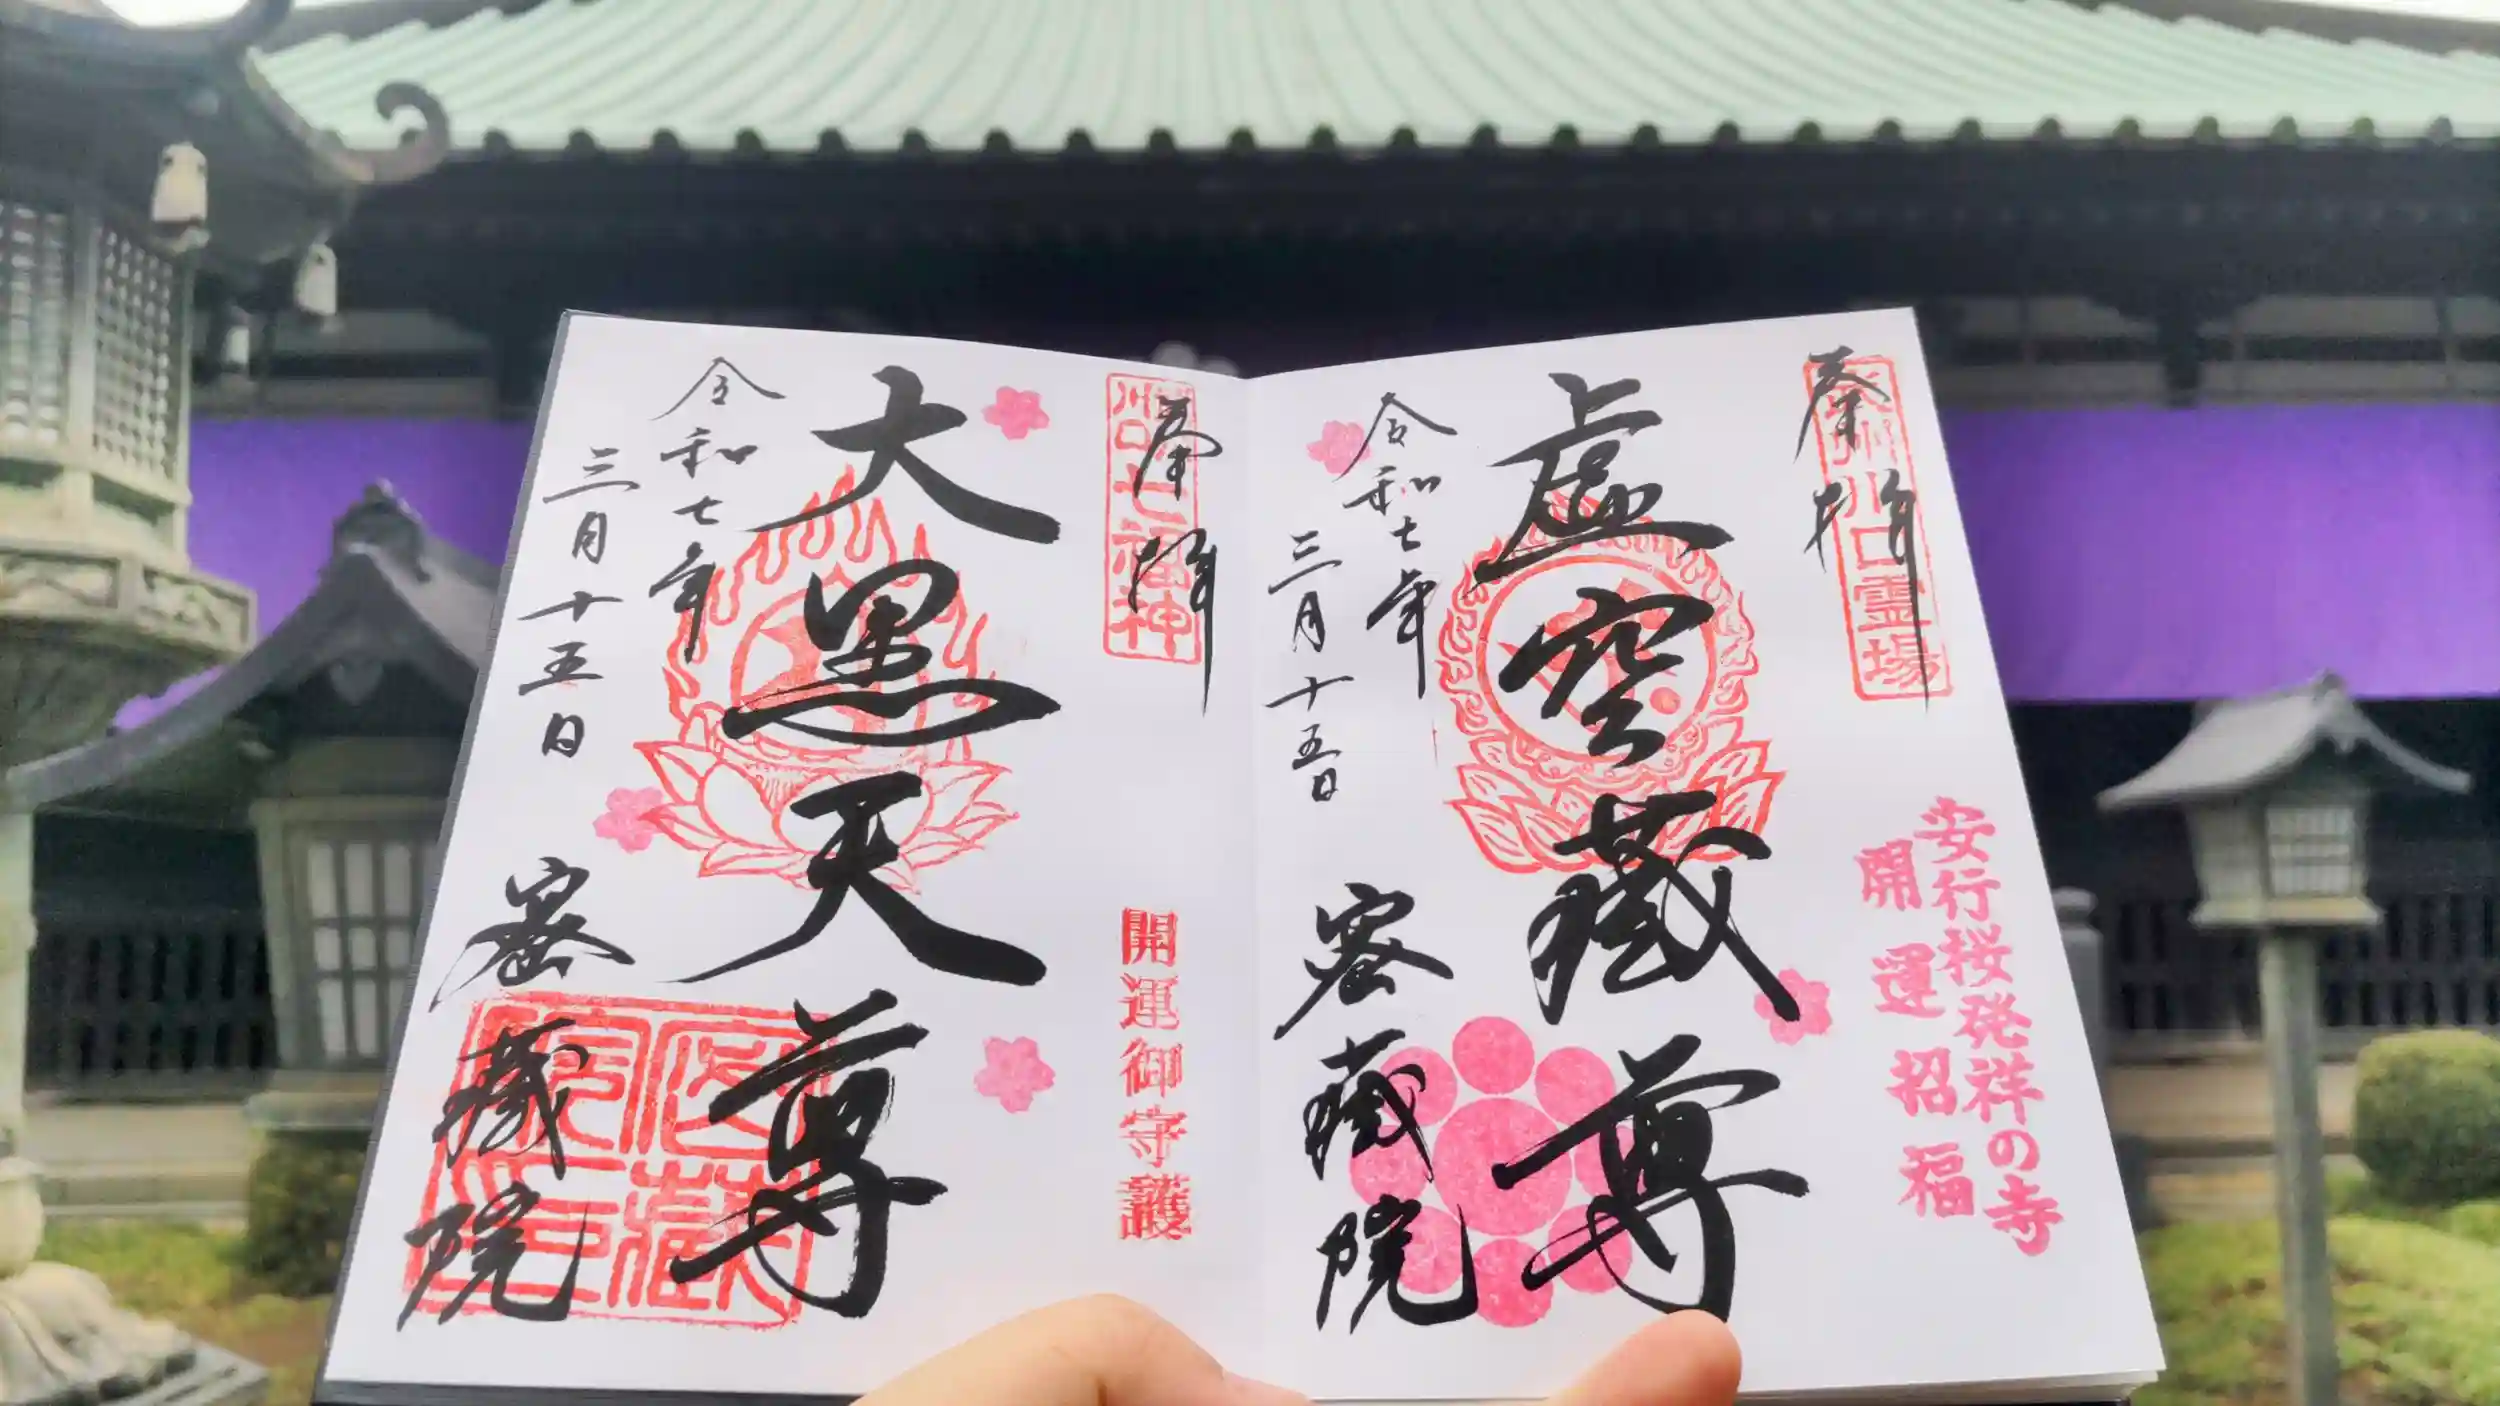 奉拝
奥州川口霊場
安行桜発祥の寺
開運招福
虚空蔵尊
令和七年
三月十五日
密蔵院
奉拝
川口七福神
開運御守護
大黒天尊
令和七年
三月十五日
密蔵院